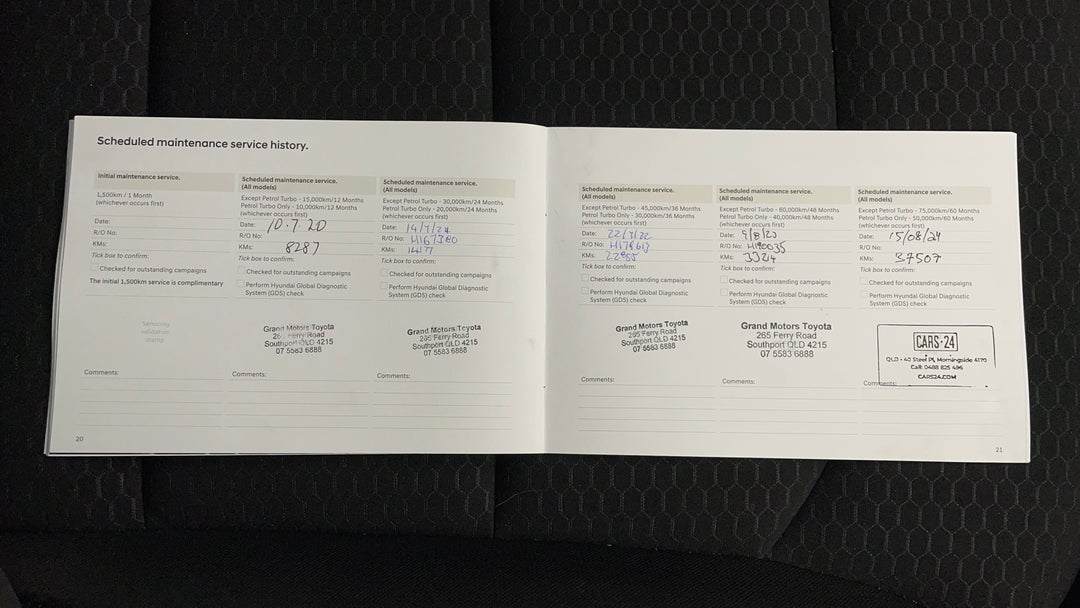 Scheduled maintenance service history.
Initial maintenance service.
1,500km / 1 Month
(whichever occurs first)
Date:
R/O No:
KMs:
Tick box to confirm:
Checked for outstanding campaigns
The initial 1,500km service is complimentary
Servicing
validation
stamp
Comments:
Scheduled maintenance service.
(All models)
Except Petrol Turbo - 15,000km/12 Months
Petrol Turbo Only - 10,000km/12 Months
(whichever occurs first)
Date: 10.7.20
R/O No:
KMs: 8287
Tick box to confirm:
Checked for outstanding campaigns
Perform Hyundai Global Diagnostic
System (GDS) check
Grand Motors Toyota
Ferry Road
Southport QLD 4215
07 5583 6888
Comments:
Scheduled maintenance service.
(All models)
Except Petrol Turbo - 30,000km/24 Months
Petrol Turbo Only - 20,000km/24 Months
(whichever occurs first)
Date:
R/O No:
KMs: 14177
Tick box to confirm:
Checked for outstanding campaigns
Perform Hyundai Global Diagnostic
System (GDS) check
Grand Motors Toyota
265 Ferry Road
Southport QLD 4215
07 5583 6888
Comments:
20
Scheduled maintenance service.
(All models)
Except Petrol Turbo - 45,000km/36 Months
Petrol Turbo Only - 30,000km/36 Months
(whichever occurs first)
Date: 22/7/22
R/O No:
KMs:
Tick box to confirm:
Checked for outstanding campaigns
Perform Hyundai Global Diagnostic
System (GDS) check
Grand Motors Toyota
265 Ferry Road
Southport QLD 4215
07 5583 6888
Comments:
Scheduled maintenance service.
(All models)
Except Petrol Turbo - 60,000km/48 Months
Petrol Turbo Only - 40,000km/48 Months
(whichever occurs first)
Date: 9/8/23
R/O No:
KMs:
Tick box to confirm:
Checked for outstanding campaigns
Perform Hyundai Global Diagnostic
System (GDS) check
Grand Motors Toyota
265 Ferry Road
Southport QLD 4215
07 5583 6888
Comments:
Scheduled maintenance service.
(All models)
Except Petrol Turbo - 75,000km/60 Months
Petrol Turbo Only - 50,000km/60 Months
(whichever occurs first)
Date: 15/08/24
R/O No:
KMs: 37507
Tick box to confirm:
Checked for outstanding campaigns
Perform Hyundai Global Diagnostic
System (GDS) check
CARS·24
QLD - 40 Steel Pl, Morningside 4170
Call: 0488 825 496
CARS24.COM
Comments:
21